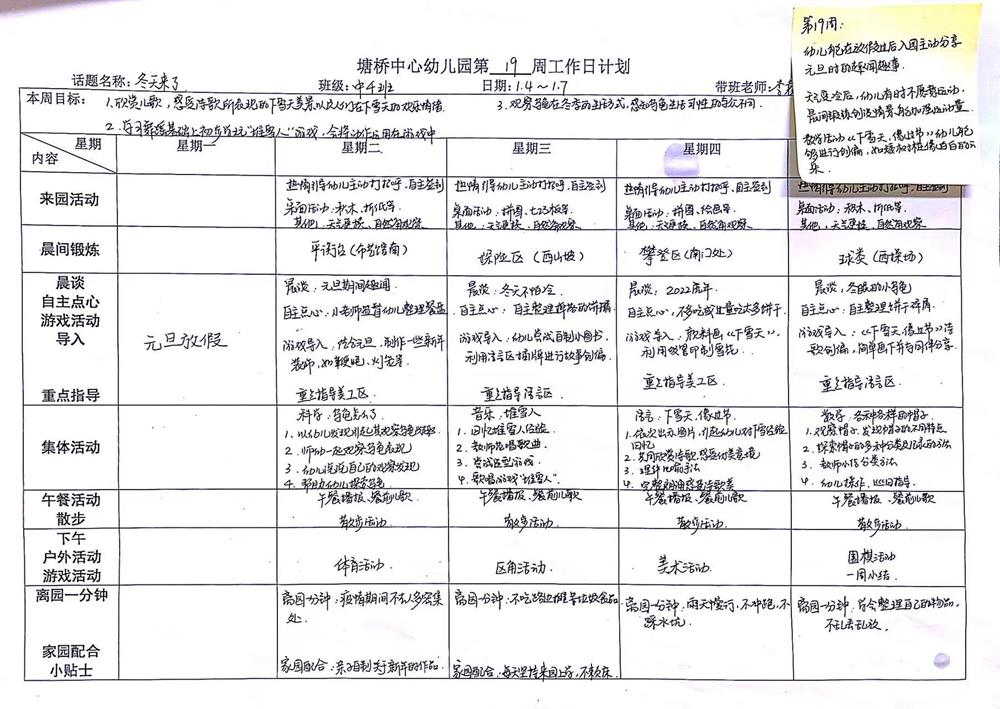 第19周:
幼儿能在放假过后入园主动分享
元旦时的趣闻趣事。
天气变冷后,幼儿有时不愿意运动,
晨间锻炼创设情景能加强运动量
教学活动《下雪天,像过节》幼儿能
够进行创编,如矮松树像白白的云
朵.
塘桥中心幼儿园第 19 周工作日计划
话题名称:冬天来了 班级:中4班 日期:1.4~1.7 带班老师:
本周目标:1.欣赏儿歌,感受诗歌所表现的下雪天美景以及人们在下雪天的欢乐情绪. 3.观察乌龟在冬季的生活方式,感知乌龟生活习性的与众不同.
2.在习舞谣基础上初步学玩“堆雪人”游戏,合拍动作运用在游戏中
内容 星期 星期一 星期二 星期三 星期四
来园活动
热情引导幼儿主动打招呼,自主签到
桌面活动:积木、折纸等.
其他:天气更换、自然角观察
热情引导幼儿主动打招呼,自主签到
桌面活动:拼图、七巧板等.
其他:天气更换、自然角观察
热情引导幼儿主动打招呼、自主签到
桌面活动:拼图、绘画等.
其他:天气更换、自然角观察
热情引导幼儿主动打招呼,自主签到
桌面活动:积木、折纸等.
其他:天气更换、自然角观察
晨间锻炼
平衡台(布艺馆南)
探险区(西山坡)
攀登区(南门处)
球类(西操场)
晨谈
自主点心
游戏活动
导入
重点指导
元旦放假
晨谈:元旦期间趣闻
自主点心:小老师监督幼儿整理餐盘
游戏导入:结合元旦,制作一些新年
装饰,如鞭炮、灯笼等
重点指导美工区.
晨谈:冬天不怕冷
自主点心:自主整理掉落的饼屑.
游戏导入:幼儿尝试自制小图书,
利用语言区插牌进行故事创编.
重点指导语言区.
晨谈:2022虎年.
自主点心:不多吃或过量吃过多饼干
游戏导入:颜料画《下雪天》,
利用吸管印制雪花
重点指导美工区
晨谈:冬眠的小乌龟
自主点心:自主整理饼干碎屑.
游戏导入:《下雪天,像过节》诗
歌创编,简单画下并与同伴分享.
重点指导语言区.
集体活动
科学:乌龟怎么了
1.以幼儿发现引起其观察乌龟的兴趣
2.师幼一起观察乌龟表现
3.幼儿说说自己的观察发现
4.帮助幼儿探索乌龟
音乐:堆雪人
1.回忆堆雪人经验
2.教师范唱歌曲
3.尝试造型游戏
4.歌唱游戏“堆雪人”.
语言:下雪天,像过节
1.依次出示图片,引起幼儿对下雪经验
回忆
2.共同欣赏诗歌,感受优美意境
3.理解比喻手法
4.完整朗诵感受诗歌美
数学:各种各样的帽子
1.观察帽子,发现帽子的不同特点
2.探索帽子的多种分类及记录的方法
3.教师小结分类方法
4.幼儿操作,巡回指导
午餐活动
散步
午餐播报、餐前儿歌
散步活动.
午餐播报、餐前儿歌
散步活动.
午餐播报、餐前儿歌
散步活动.
午餐播报、餐前儿歌
散步活动.
下午
户外活动
游戏活动
体育活动.
区角活动.
美术活动.
围棋活动
一周小结.
离园一分钟
家园配合
小贴士
离园一分钟:疫情期间不去人多密集
处.
家园配合:亲子自制关于新年的作品.
离园一分钟:不吃路边摊等垃圾食品
家园配合:每天坚持来园上学,不赖床.
离园一分钟:雨天慢行,不冲跑,不
踩水坑.
离园一分钟:学会整理自己的物品,
不乱丢乱放.